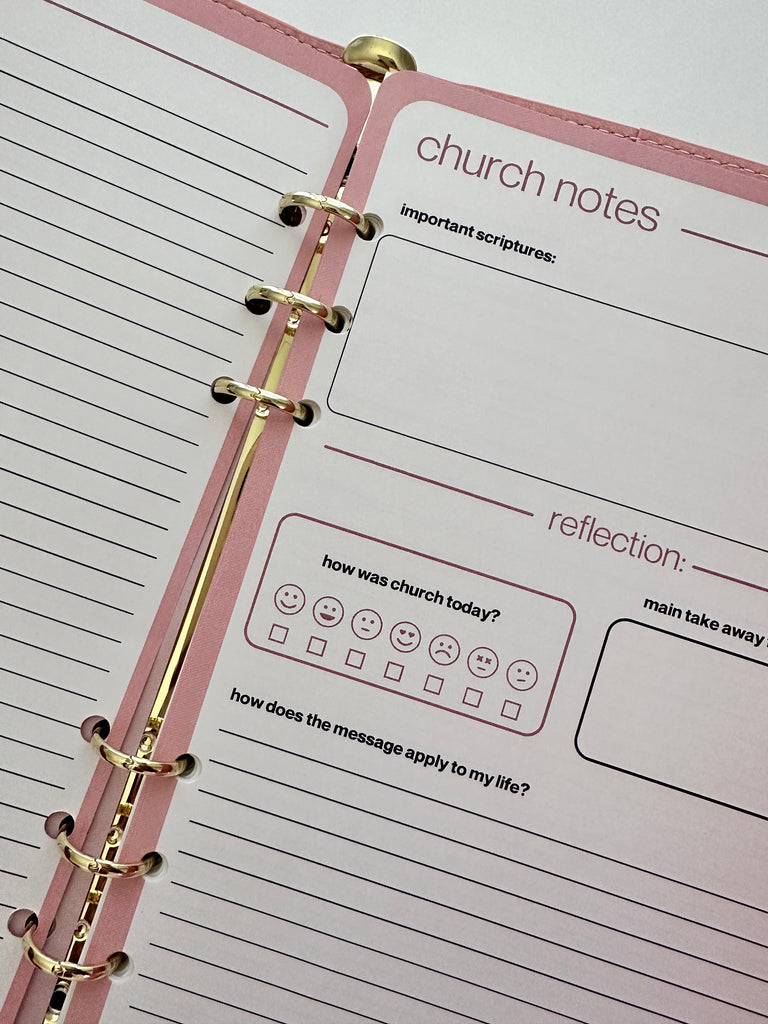 church notes
important scriptures:
reflection:
how was church today?
main take away
how does the message apply to my life?